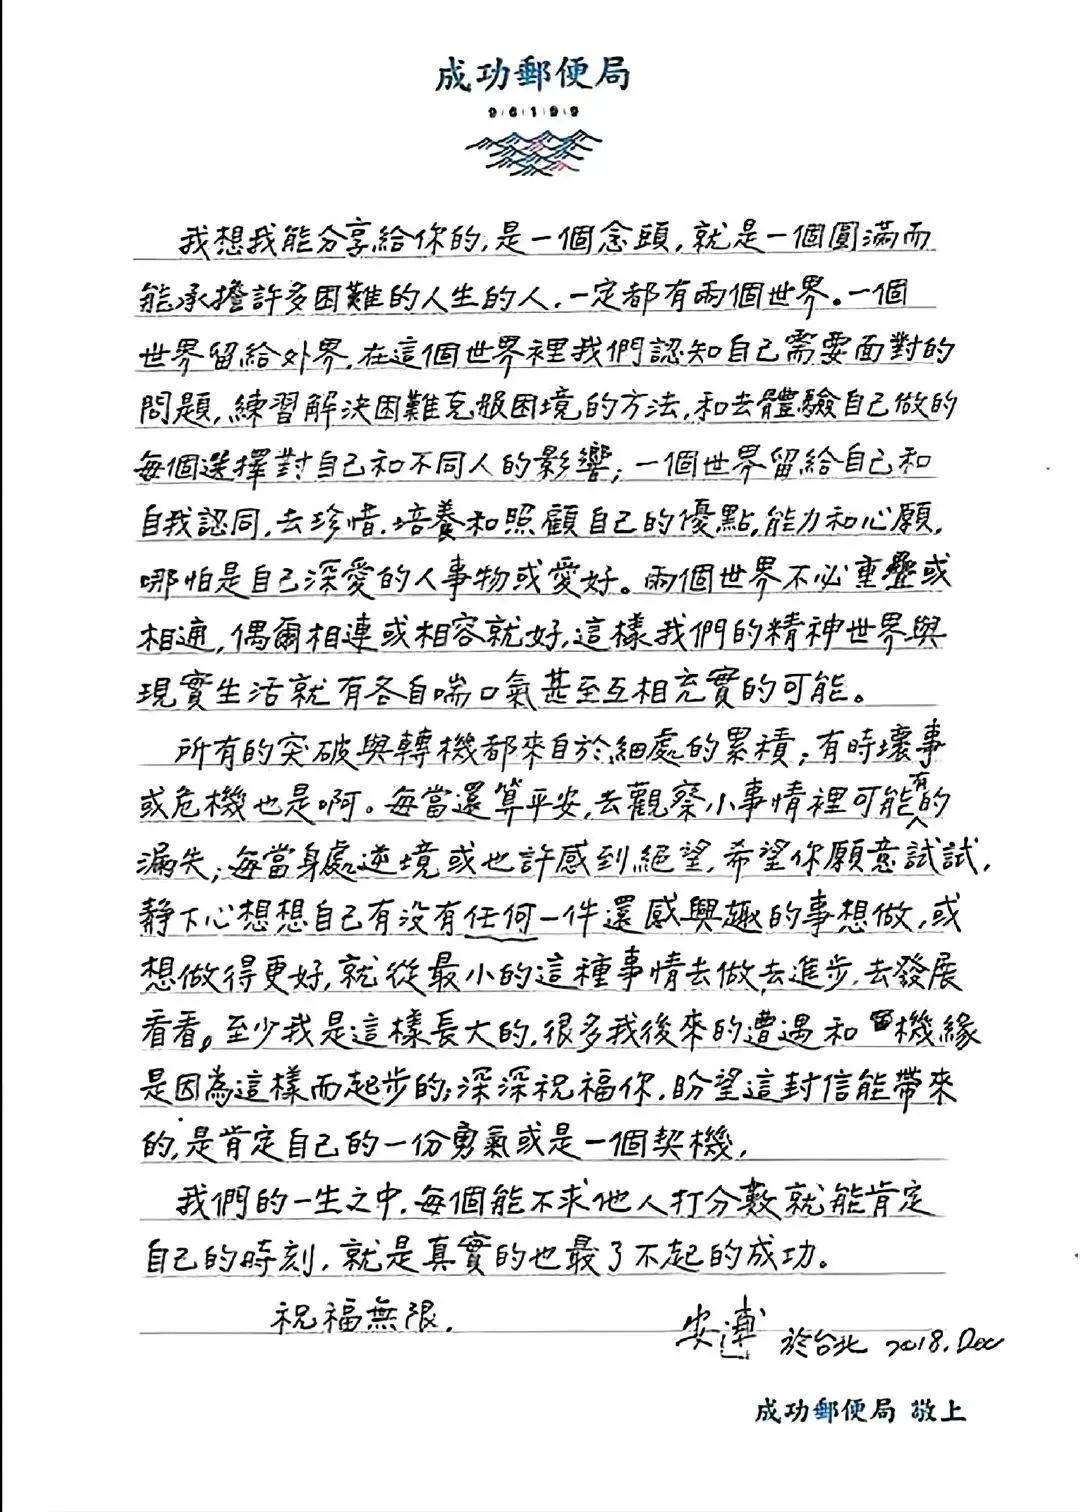 成功郵便局
96199
我想我能分享給你的，是一個念頭，就是一個圓滿而
能承擔許多困難的人生的人，一定都有兩個世界。一個
世界留給外界，在這個世界裡我們認知自己需要面對的
問題，練習解決困難克服困境的方法，和去體驗自己做的
每個選擇對自己和不同人的影響；一個世界留給自己和
自我認同，去珍惜，培養和照顧自己的優點，能力和心願，
哪怕是自己深愛的人事物或愛好。兩個世界不必重疊或
相通，偶爾相連或相容就好，這樣我們的精神世界與
現實生活就有各自喘口氣甚至互相充實的可能。
所有的突破與轉機都來自於細處的累積；有時壞事
或危機也是啊。每當還算平安，去觀察小事情裡可能有的
漏失；每當身處逆境或也許感到絕望，希望你願意試試，
靜下心想想自己有沒有任何一件還感興趣的事想做，或
想做得更好，就從最小的這種事情去做，去進步，去發展
看看。至少我是這樣長大的，很多我後來的遭遇和機緣
是因為這樣而起步的；深深祝福你，盼望這封信能帶來
的，是肯定自己的一份勇氣或是一個契機，
我們的一生之中，每個能不求他人打分數就能肯定
自己的時刻，就是真實的也最了不起的成功。
祝福無限，
安溥 於台北 2018. Dec
成功郵便局 敬上